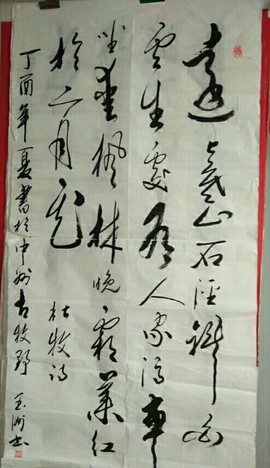 遠上寒山石徑斜白
雲生處有人家停車
坐愛楓林晚霜葉紅
於二月花 杜牧诗
丁酉年夏書於中州古牧野 玉洲书